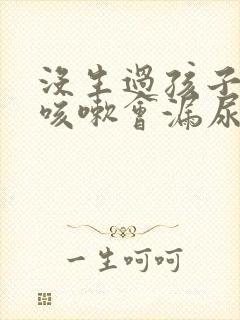 沒生過孩子
咳嗽會漏尿
一生呵呵